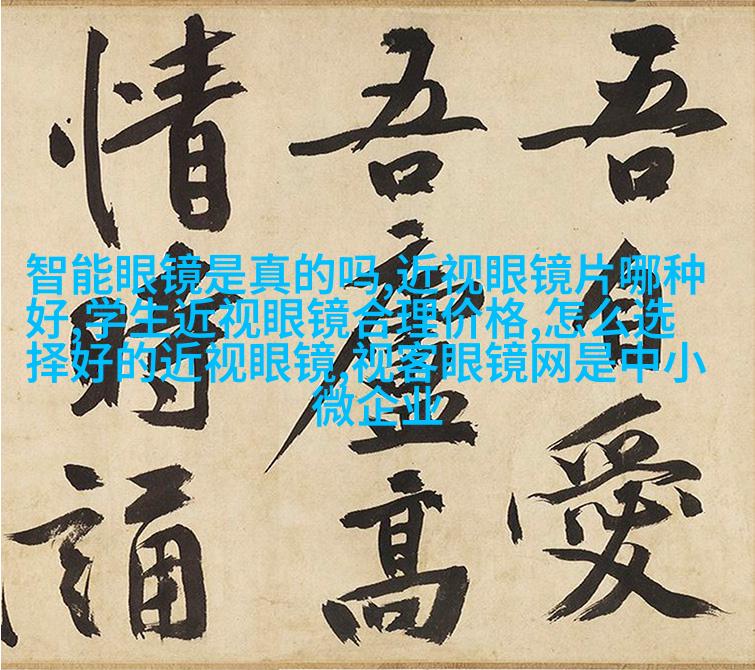 吾自愛
吾廬高
情時誦
智能眼镜是真的吗,近视眼镜片哪种
好,学生近视眼镜合理价格,怎么选
择好的近视眼镜,视客眼镜网是中小
微企业